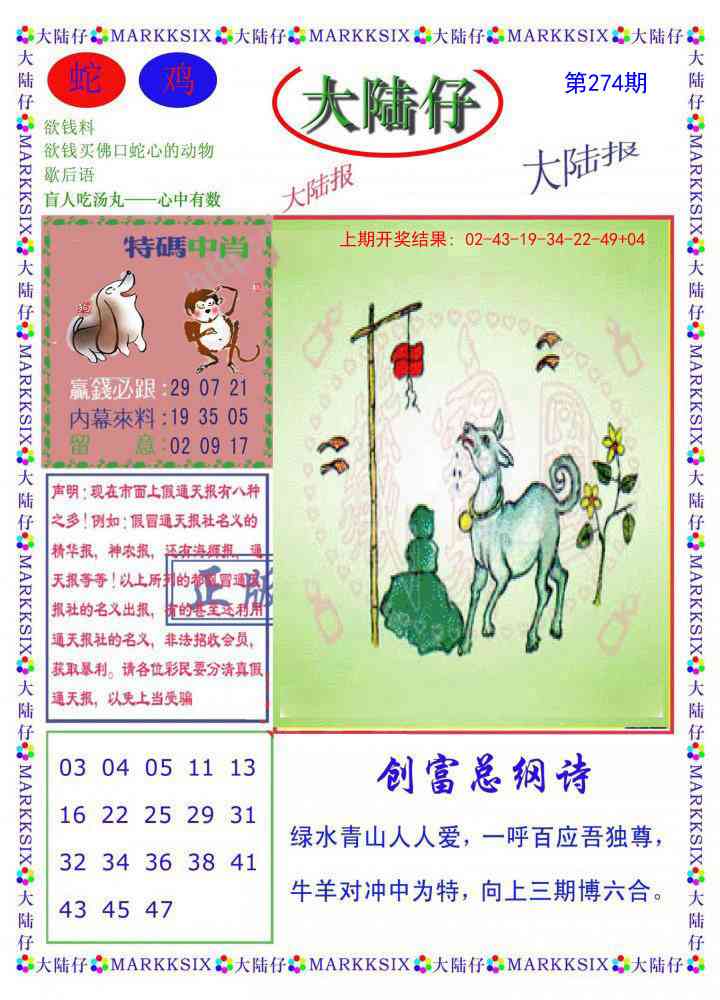 大陆仔 MARKKSIX 大陆仔 MARKKSIX 大陆仔 MARKKSIX 大陆仔 MARKKSIX 大陆仔 MARKKSIX 大陆仔 MARKKSIX 大陆仔
蛇 鸡
大陆仔
第274期
欲钱料
欲钱买佛口蛇心的动物
歇后语
盲人吃汤丸——心中有数
大陆报
大陆报
特碼中肖
狗
赢錢必跟:29 07 21
内幕來料:19 35 05
留 意:02 09 17
上期开奖结果：02-43-19-34-22-49+04
声明：现在市面上假通天报有八种
之多！例如：假冒通天报社名义的
精华报，神农报，还有海狮报，通
天报等等！以上所列的都假冒通天
报社的名义出报，有的甚至还利用
通天报社的名义，非法招收会员，
获取暴利。请各位彩民要分清真假
通天报，以免上当受骗
正版
03 04 05 11 13
16 22 25 29 31
32 34 36 38 41
43 45 47
创富总纲诗
绿水青山人人爱，一呼百应吾独尊，
牛羊对冲中为特，向上三期博六合。
大陆仔 MARKKSIX 大陆仔 MARKKSIX 大陆仔 MARKKSIX 大陆仔 MARKKSIX 大陆仔 MARKKSIX 大陆仔 MARKKSIX 大陆仔